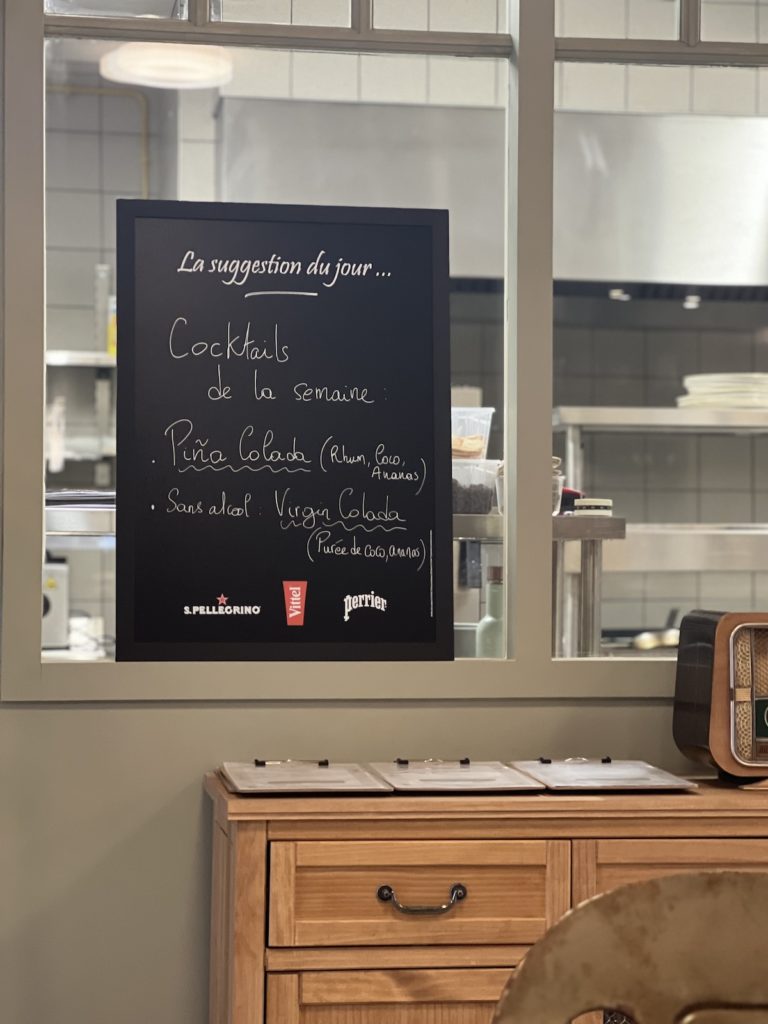 La suggestion du jour...
Cocktails
de la semaine :
. Piña Colada (Rhum, Coco,
Ananas)
. Sans alcool : Virgin Colada
(Purée de Coco, ananas)
S.PELLEGRINO
Vittel
perrier